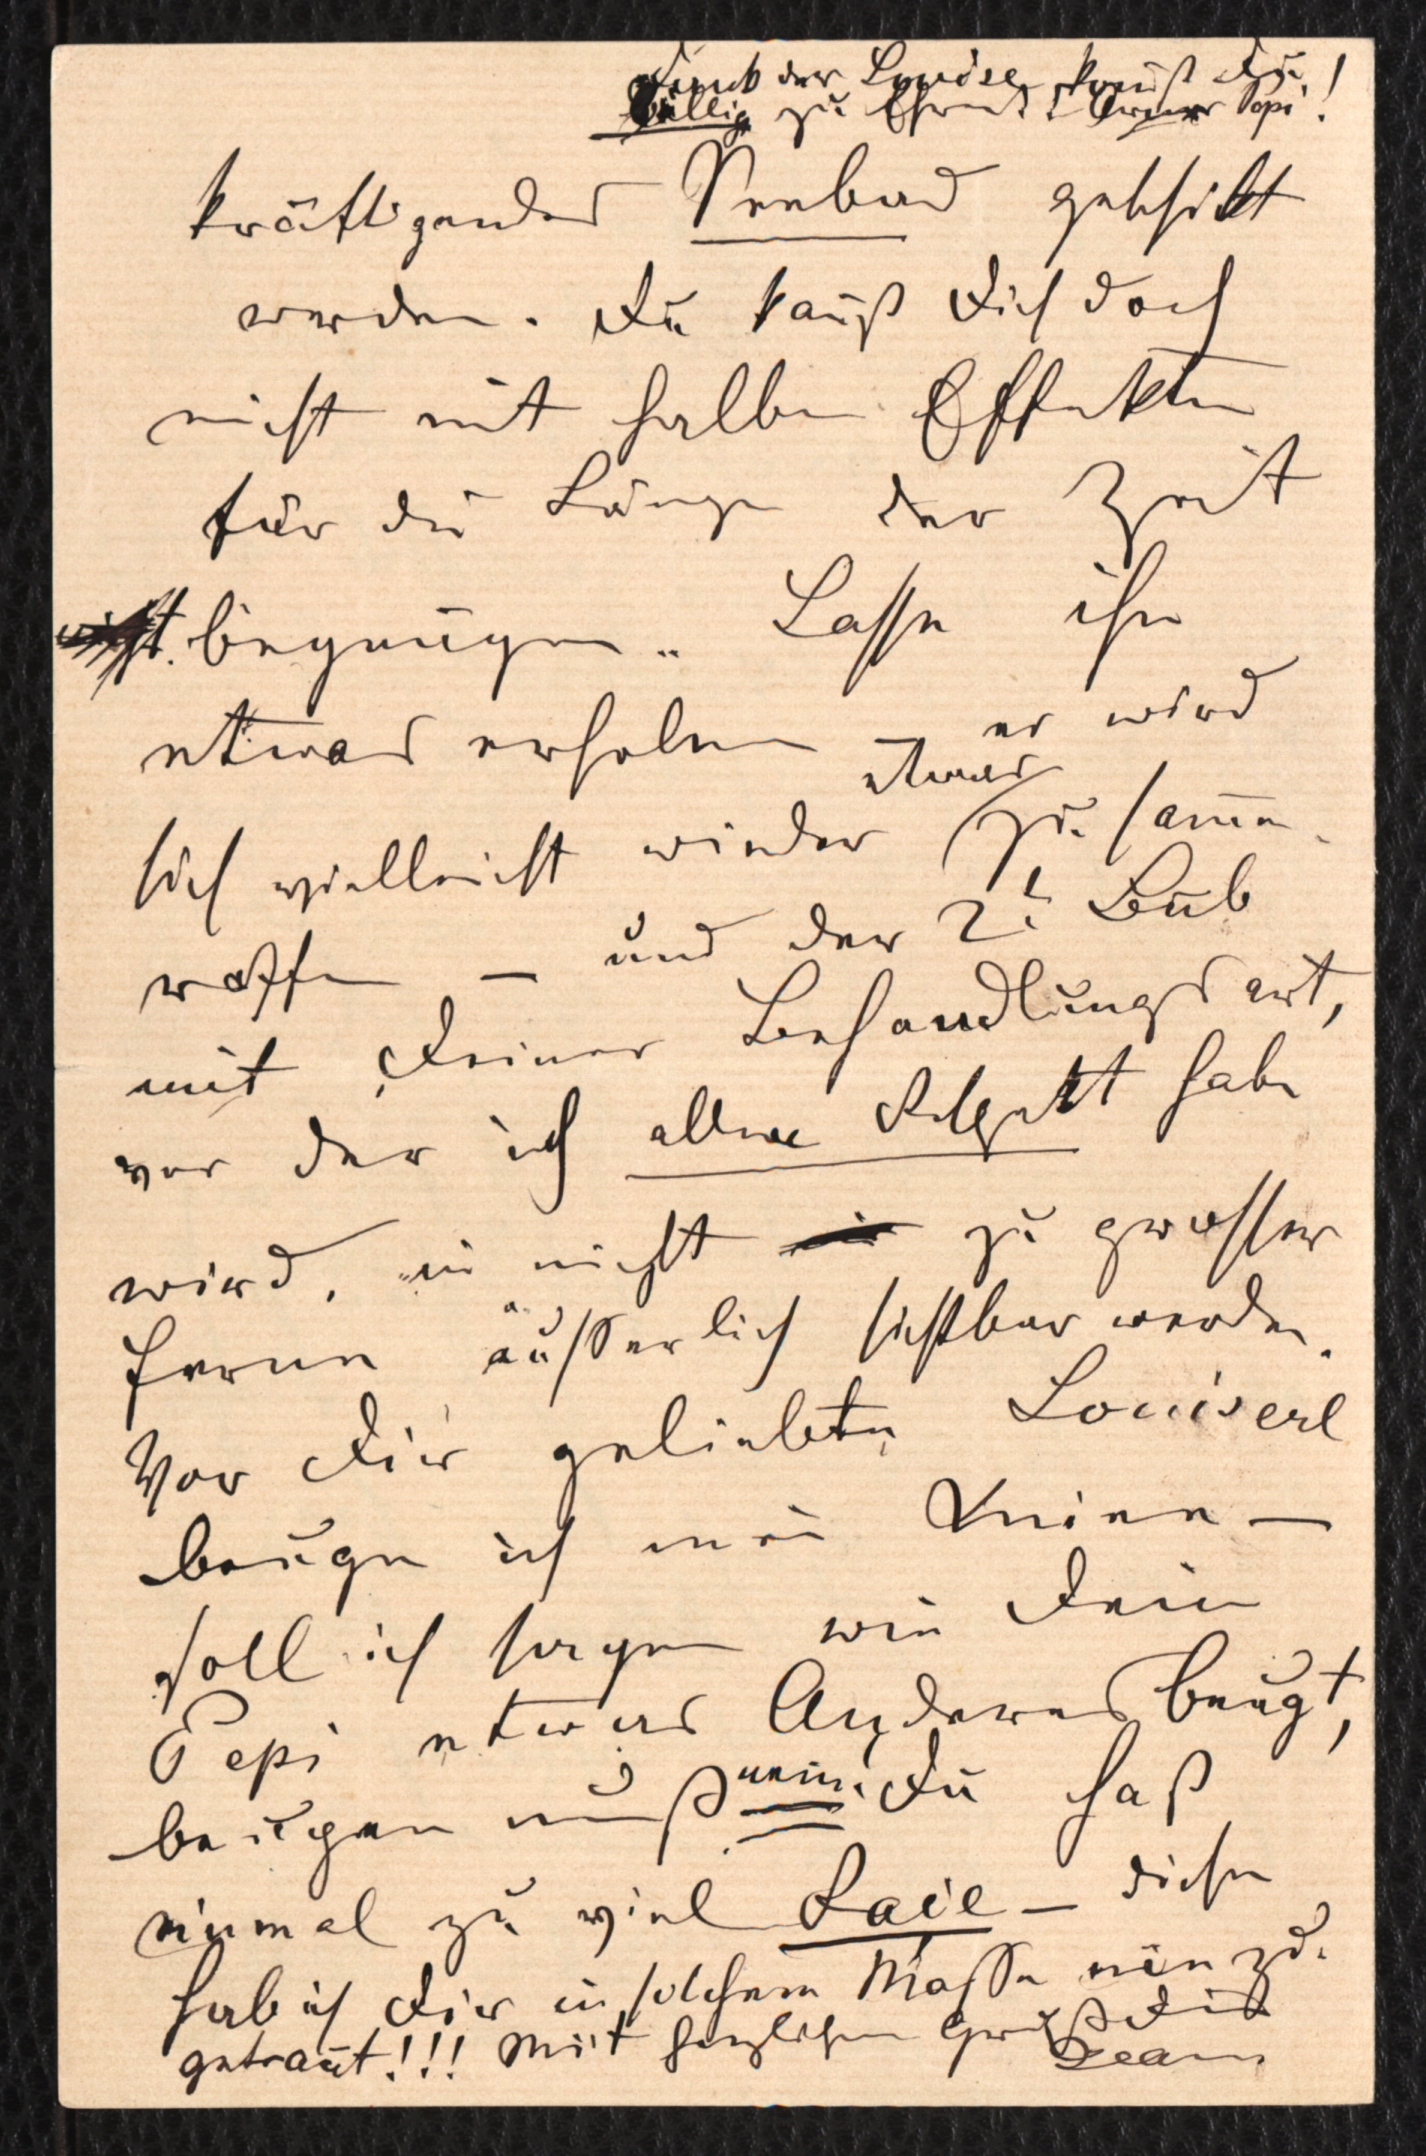 der Louise kannst Du!
völlig zu Armer Pepi!
kräftigendes Seebad geschickt
werden. Du kannst Dich doch
nicht mit halben Effekten
für die Länge der Zeit
begnügen. Lasse ihn
etwas erholen – er wird
etwas
sich vielleicht wieder zusammen
raffen – und der 2t Bub
mit Deiner Behandlungsart,
vor der ich allen Respekt habe
wird, in nicht zu grosser
Ferne äusserlich sichtbar werden.
Vor Dir geliebte Louiserl
beuge ich meine Kniee –
soll ich sagen wie Dein
Pepi etwas Anderes beugt,
beugen muß nein. Du haß
einmal zu viel – diese
hab ich Dir in solchem Masse nie zu-
getraut!!! Mit herzlichem Gruß Dein
Jean